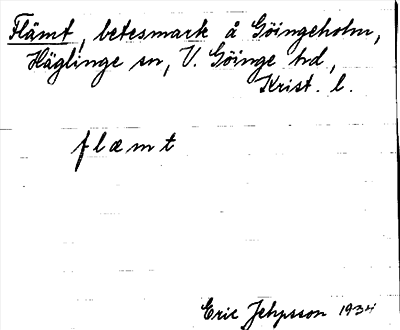 Flämt, betesmark å Göingeholm,
Häglinge sn, V. Göinge hd,
Krist. l.
flæmt
Eric 1934